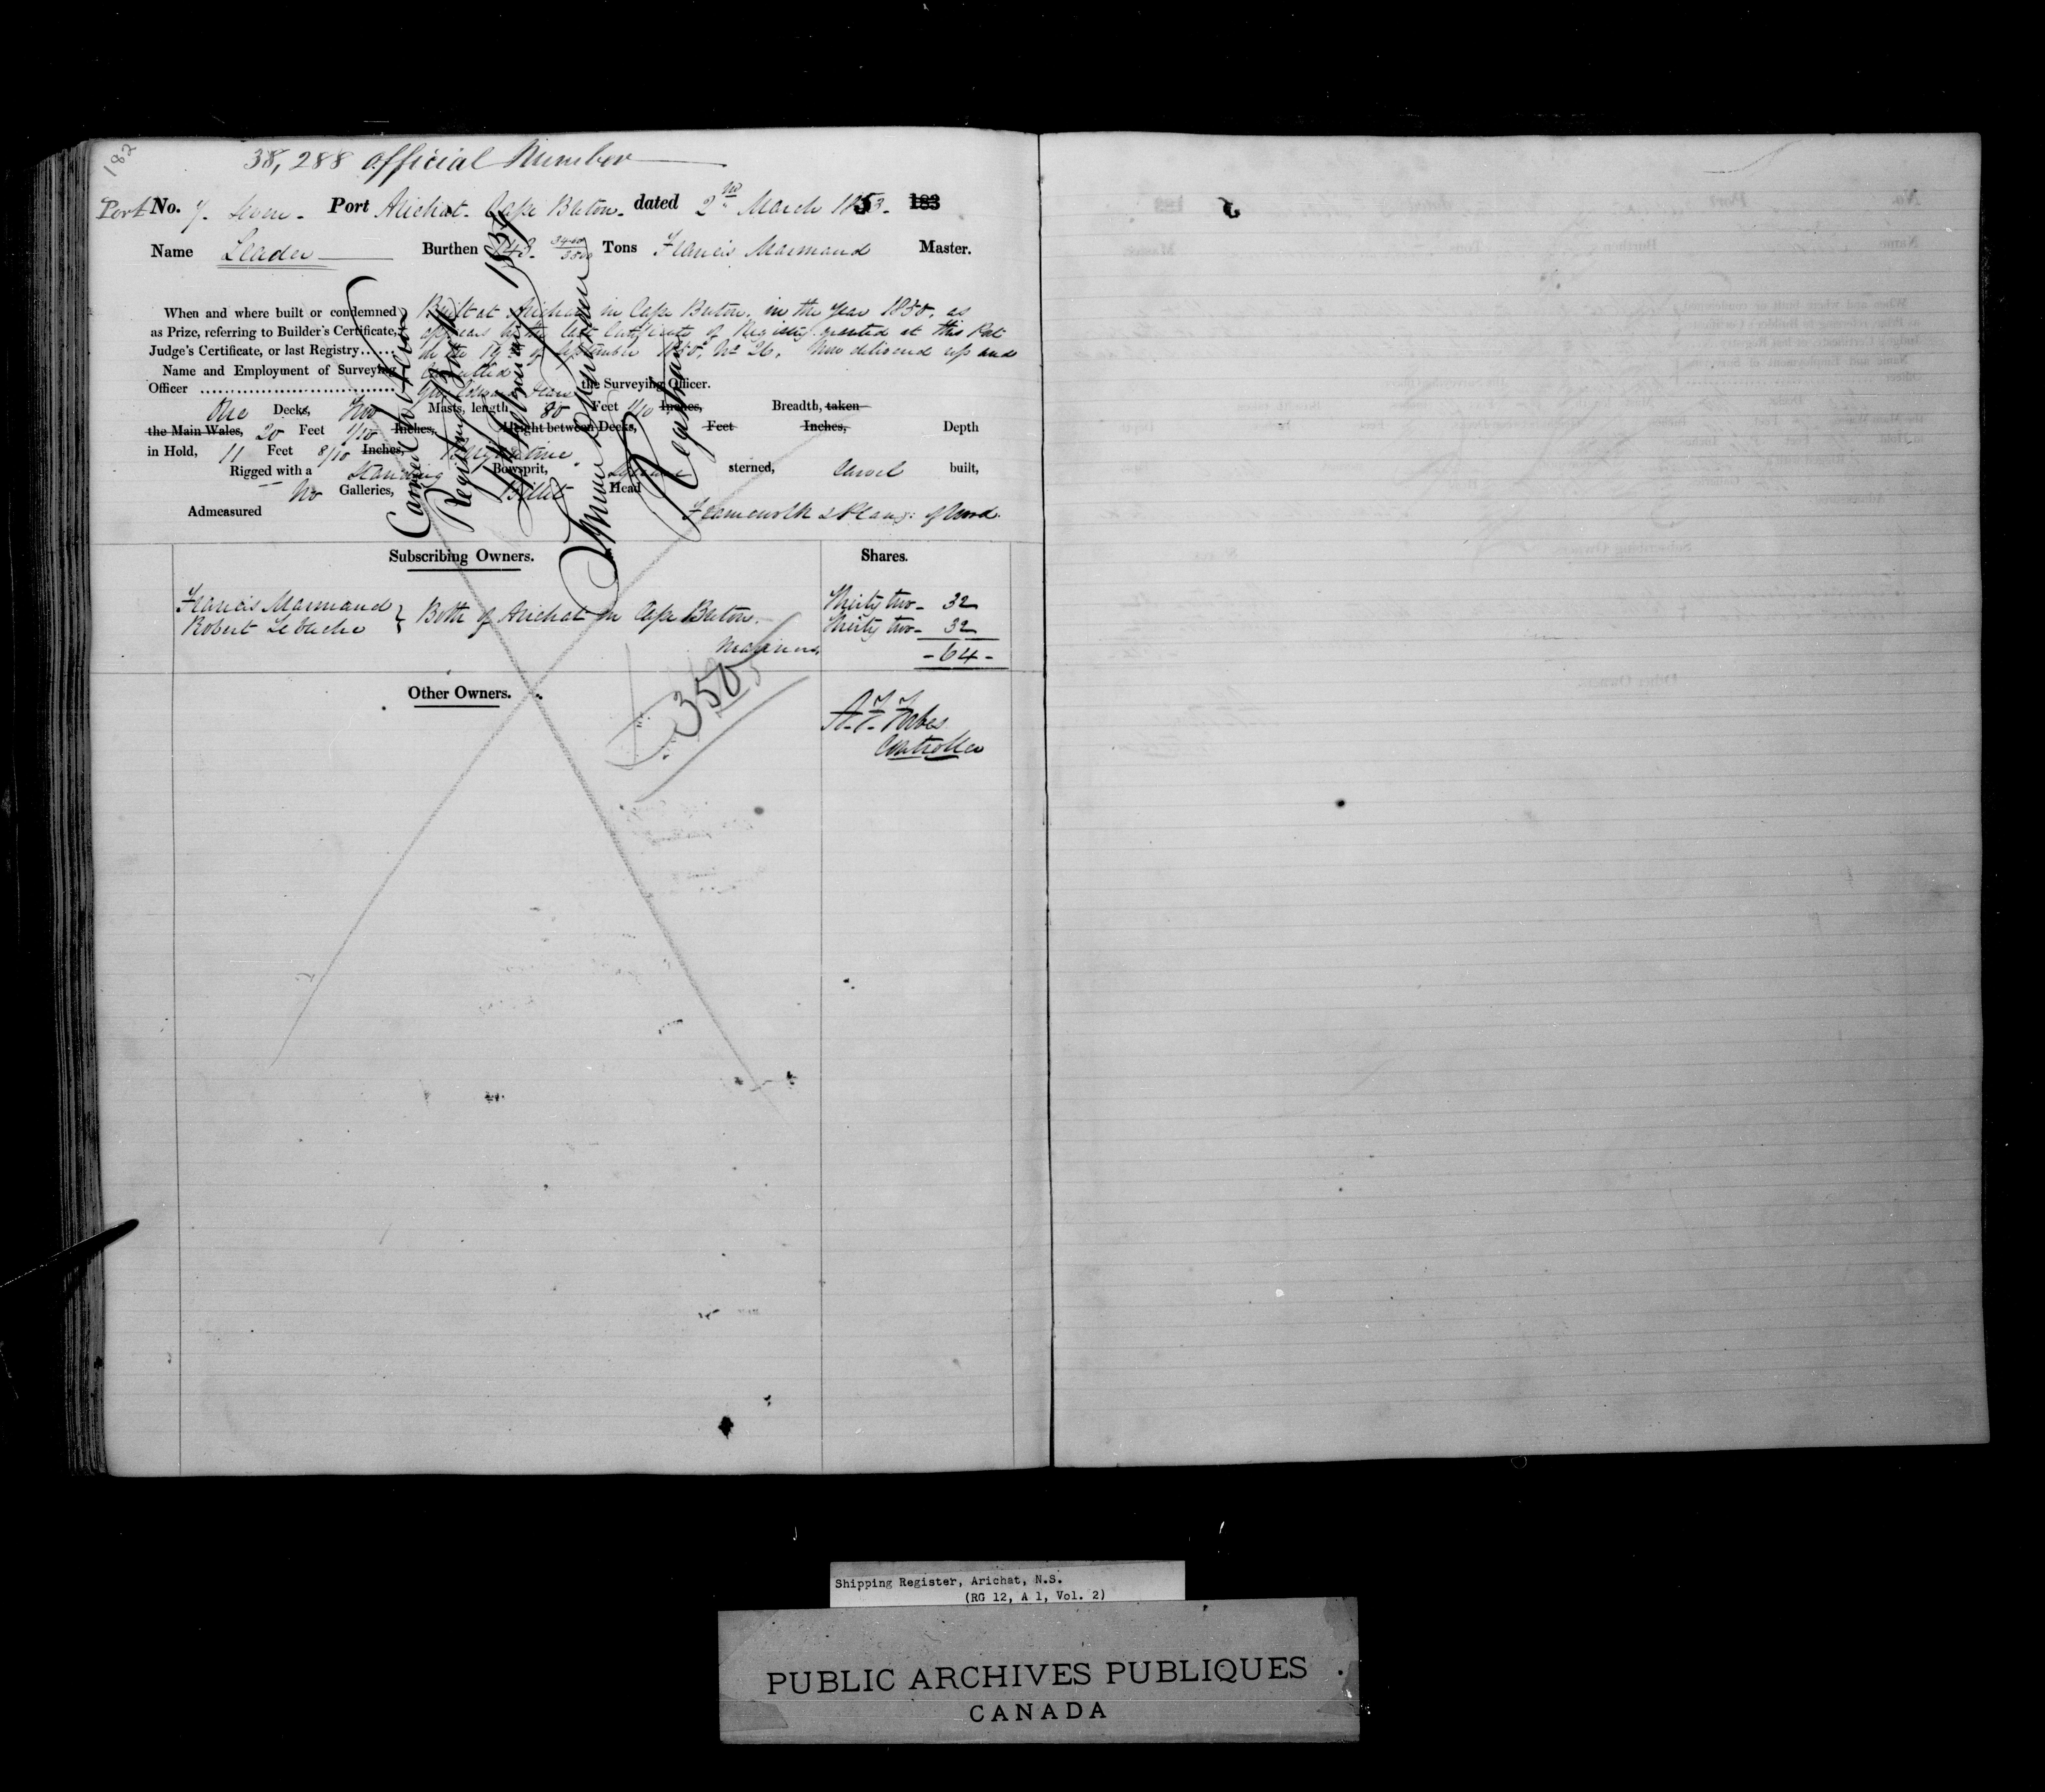 182
38,288 official Number
Port No. 7. Seven. Port Arichat. Cape Breton. dated 2nd March 1853. 183
Name Leader Burthen 143. 3400/3500 Tons Francis Marmaud Master.
When and where built or condemned as Prize, referring to Builder's Certificate, Judge's Certificate, or last Registry......
Built at Arichat in Cape Breton, in the year 1850, as
appears by the last Certificate of Registry granted at this Port
on the 19th of September 1850, No 26. Now delivered up and
cancelled
Name and Employment of Surveying
Officer the Surveying Officer.
One Decks, Two Masts, length 80 Feet 1/10 Inches, Breadth, taken
the Main Wales, 20 Feet 1/10 Inches, Height between Decks, Feet Inches, Depth
in Hold, 11 Feet 8/10 Inches, Brigantine
Rigged with a Standing Bowsprit, Square sterned, Carvel built,
No Galleries, Billet Head
Admeasured Framework & Plang: of Wood.
Registrar
Subscribing Owners. Shares.
Francis Marmaud } Both of Arichat in Cape Breton. Thirty two - 32
Robert Leblache Thirty two - 32
Mariners - 64 -
Other Owners.
350
Forbes
Controller
Shipping Register, Arichat, N.S.
(RG 12, A 1, Vol. 2)
PUBLIC ARCHIVES PUBLIQUES
CANADA